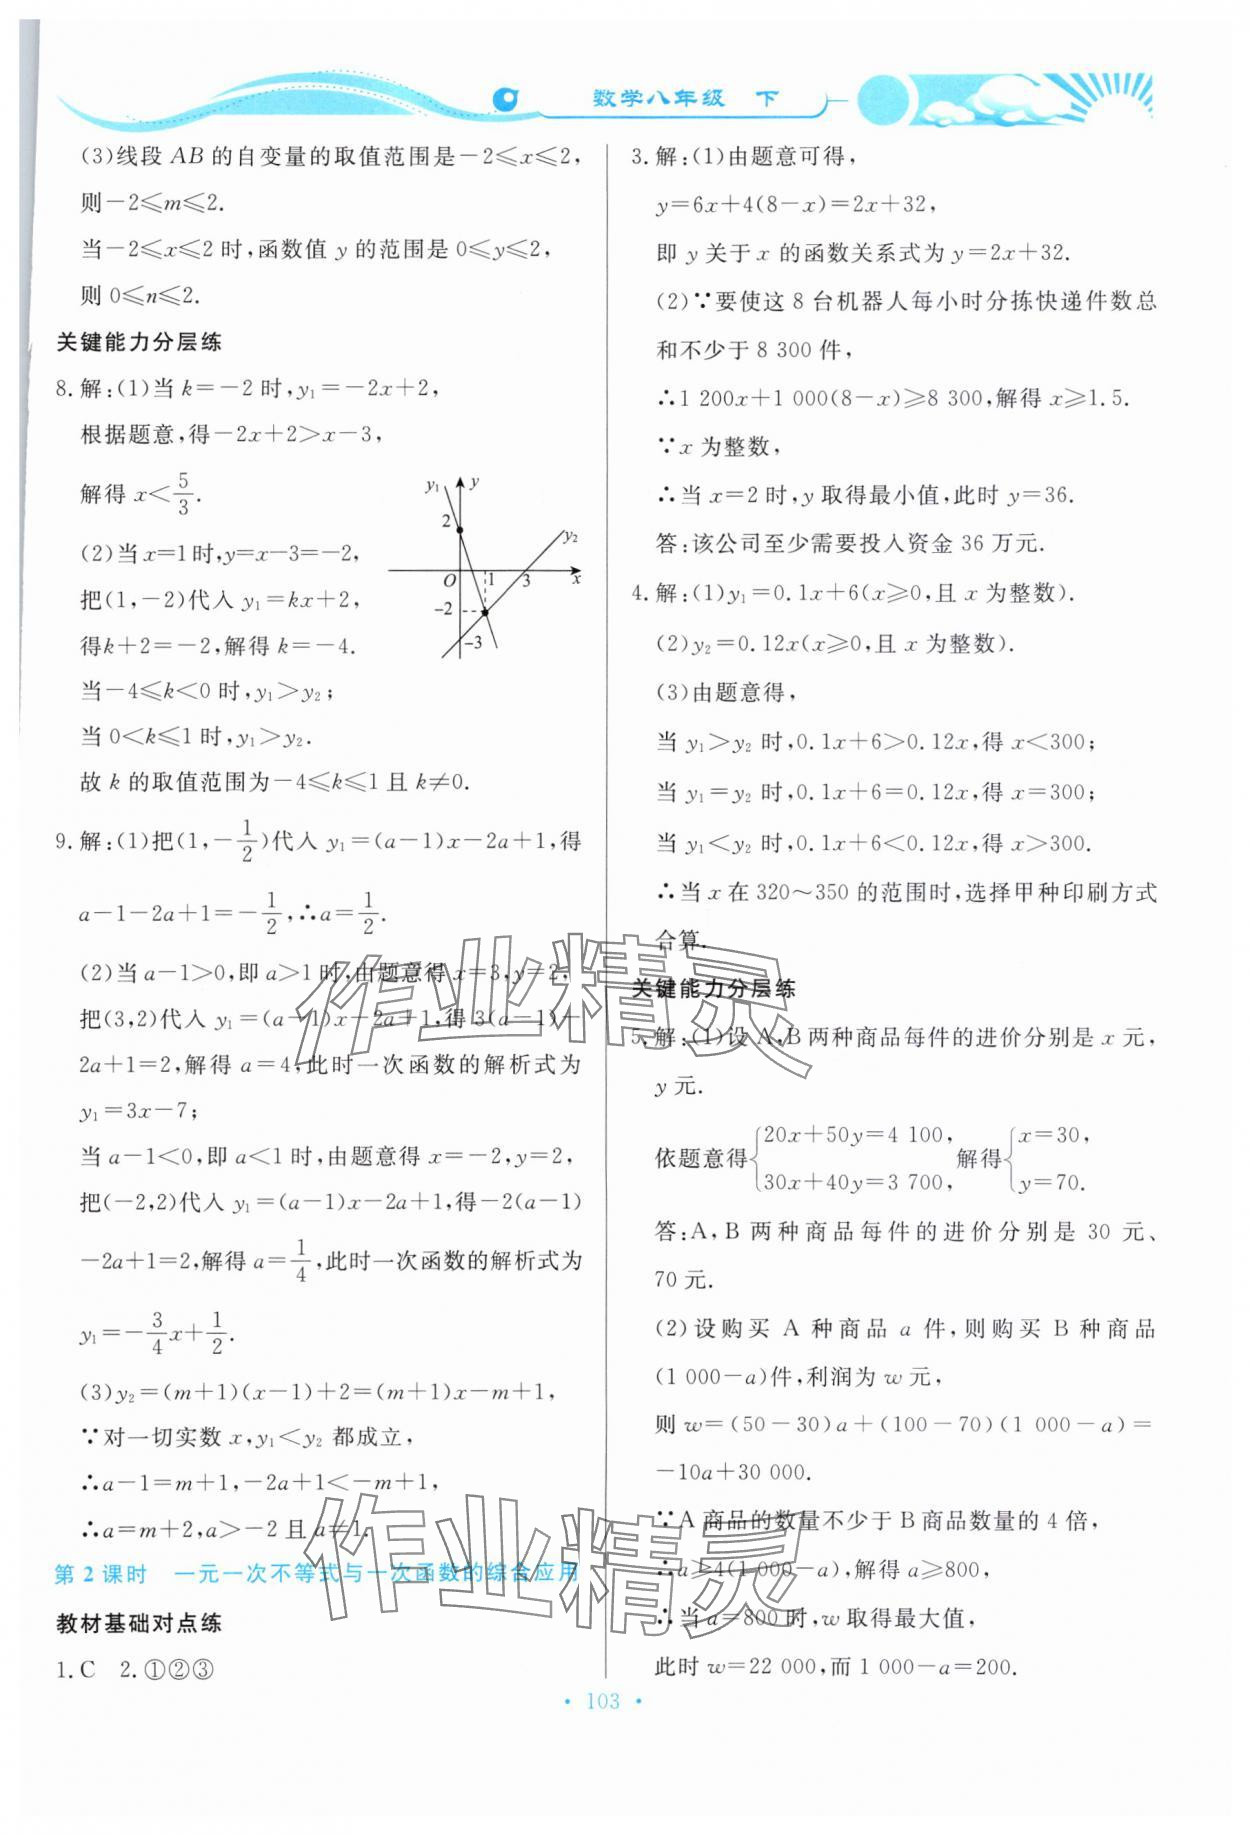 数学八年级 下
(3)线段 AB 的自变量的取值范围是-2≤x≤2,
则-2≤m≤2.
当-2≤x≤2 时,函数值 y 的范围是 0≤y≤2,
则 0≤n≤2.
关键能力分层练
8.解:(1)当 k=-2 时,y₁=-2x+2,
根据题意,得-2x+2>x-3,
解得 x<5/3.
(2)当x=1时,y=x-3=-2,
把(1,-2)代入 y₁=kx+2,
得k+2=-2,解得 k=-4.
当-4≤k<0 时,y₁>y₂;
当 0<k≤1 时,y₁>y₂.
故 k 的取值范围为-4≤k≤1 且 k≠0.
y₁
y
2
y₂
O
1
3
x
-2
-3
9.解:(1)把(1,-1/2)代入 y₁=(a-1)x-2a+1,得
a-1-2a+1=-1/2,∴a=1/2.
(2)当 a-1>0,即 a>1 时,由题意得 x=3,y=2,
把(3,2)代入 y₁=(a-1)x-2a+1,得 3(a-1)-
2a+1=2,解得 a=4,此时一次函数的解析式为
y₁=3x-7;
当 a-1<0,即 a<1 时,由题意得 x=-2,y=2,
把(-2,2)代入 y₁=(a-1)x-2a+1,得-2(a-1)
-2a+1=2,解得 a=1/4,此时一次函数的解析式为
y₁=-3/4x+1/2.
(3)y₂=(m+1)(x-1)+2=(m+1)x-m+1,
∵对一切实数 x,y₁<y₂ 都成立,
∴a-1=m+1,-2a+1<-m+1,
∴a=m+2,a>-2且a≠1.
第 2 课时 一元一次不等式与一次函数的综合应用
教材基础对点练
1.C 2.①②③
3.解:(1)由题意可得,
y=6x+4(8-x)=2x+32,
即 y 关于 x 的函数关系式为 y=2x+32.
(2)∵要使这 8 台机器人每小时分拣快递件数总
和不少于 8 300 件,
∴1 200x+1 000(8-x)≥8 300,解得 x≥1.5.
∵x 为整数,
∴当 x=2 时,y 取得最小值,此时 y=36.
答:该公司至少需要投入资金 36 万元.
4.解:(1)y₁=0.1x+6(x≥0,且 x 为整数).
(2)y₂=0.12x(x≥0,且 x 为整数).
(3)由题意得,
当 y₁>y₂ 时,0.1x+6>0.12x,得 x<300;
当 y₁=y₂ 时,0.1x+6=0.12x,得 x=300;
当 y₁<y₂ 时,0.1x+6<0.12x,得 x>300.
∴当 x 在 320～350 的范围时,选择甲种印刷方式
合算.
关键能力分层练
5.解:(1)设 A,B 两种商品每件的进价分别是 x 元,
y 元.
依题意得{20x+50y=4 100, 30x+40y=3 700, 解得{x=30, y=70.
答:A,B 两种商品每件的进价分别是 30 元、
70 元.
(2)设购买 A 种商品 a 件,则购买 B 种商品
(1 000-a)件,利润为 w 元,
则 w=(50-30)a+(100-70)(1 000-a)=
-10a+30 000.
∵A 商品的数量不少于 B 商品数量的 4 倍,
∴a≥4(1 000-a),解得 a≥800,
∴当 a=800 时,w 取得最大值,
此时 w=22 000,而 1 000-a=200.
作业精灵
作业精灵
· 103 ·